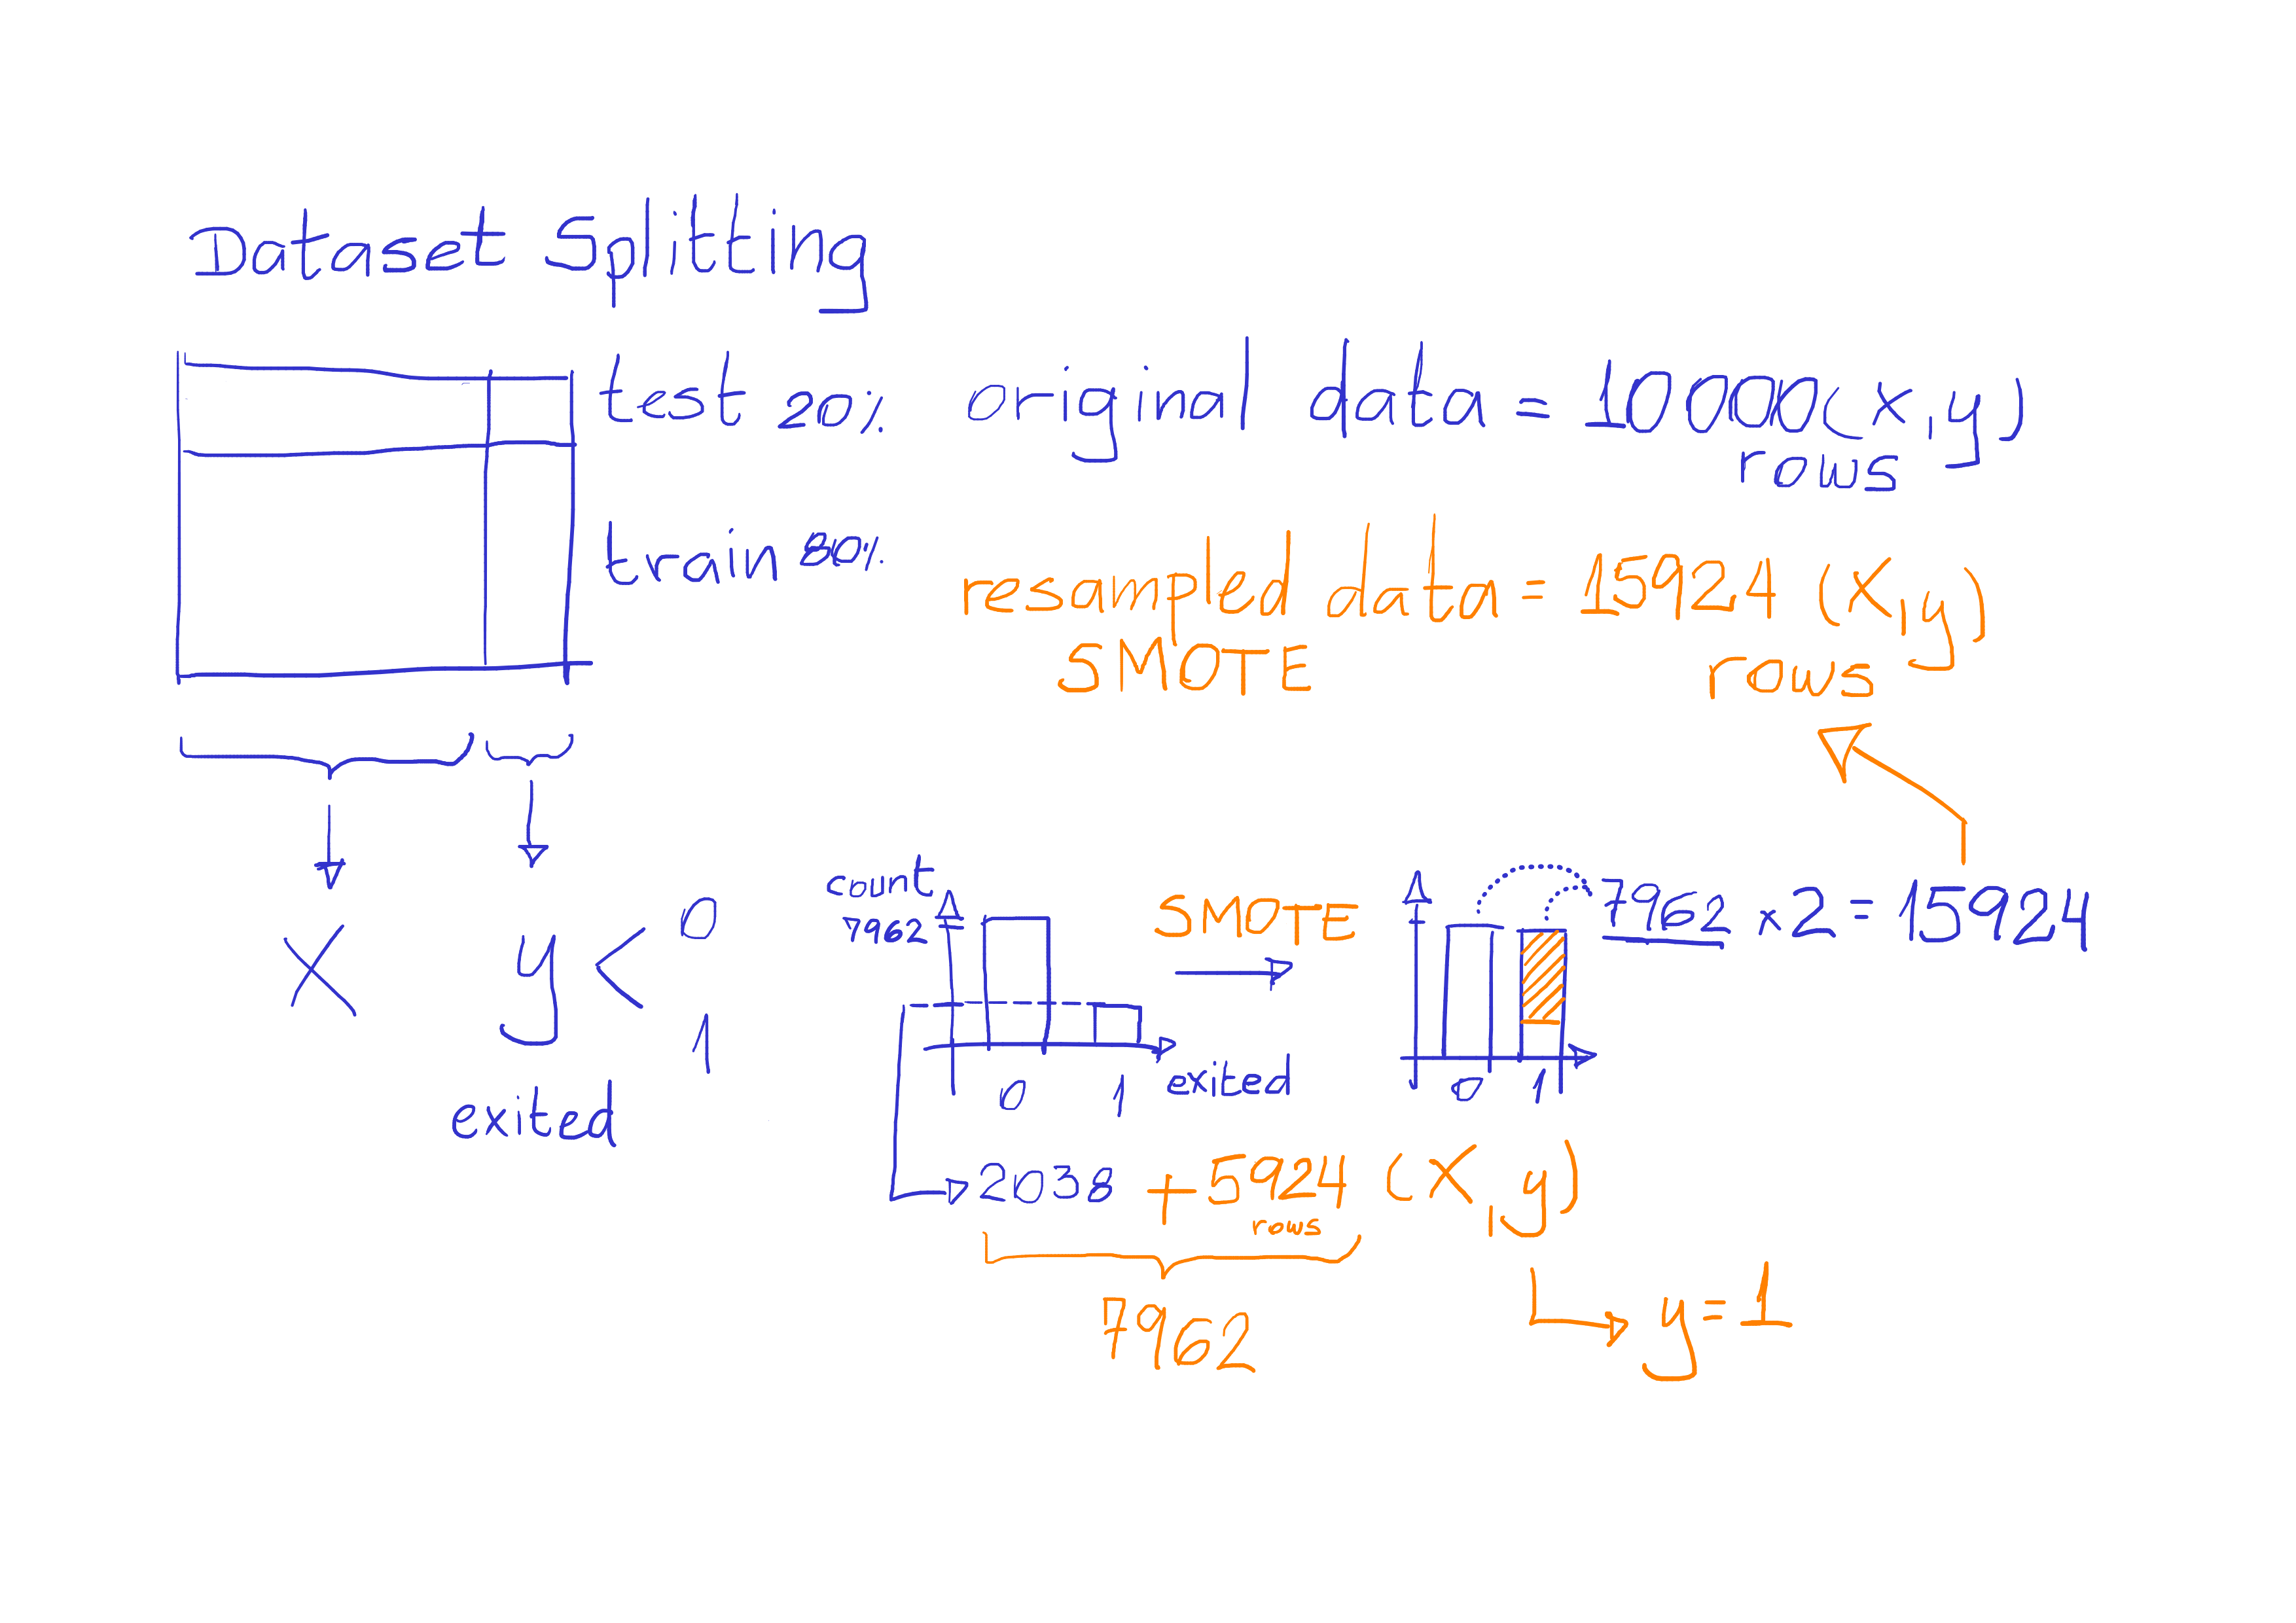 Dataset Splitting
test 20%
train 80%
original data = 10000 (X,y)
rows
resampled data = 15924 (X,y)
SMOTE
rows
X
y < 0
1
exited
count
7962
0
1
exited
SMOTE
0
1
7962 x 2 = 15924
2038 + 5924 (X,y)
rows
7962
y = 1